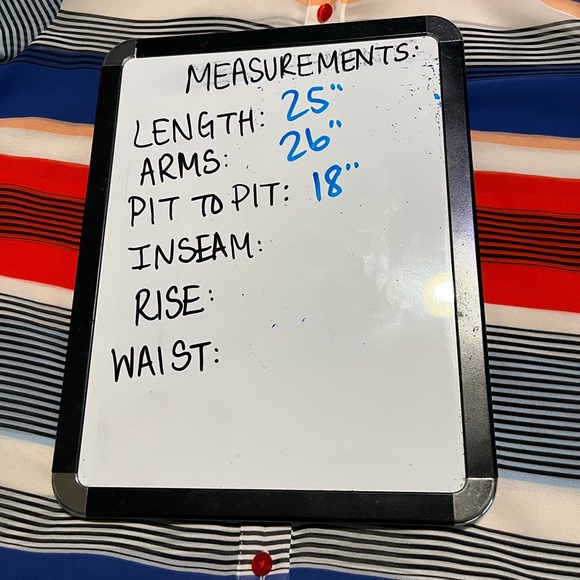 MEASUREMENTS:
LENGTH: 25"
ARMS: 26"
PIT TO PIT: 18"
INSEAM:
RISE:
WAIST: